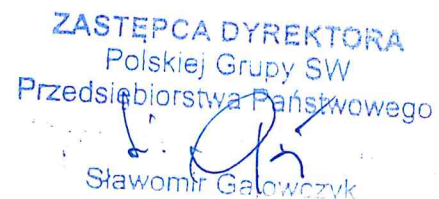 ZASTĘPCA DYREKTORA
Polskiej Grupy SW
Przedsiębiorstwa Państwowego
Sławomir Gałowczyk